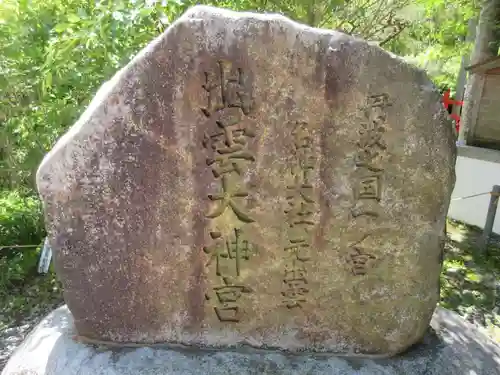 丹波之国一ノ宮
名神大社元出雲
出雲大神宮